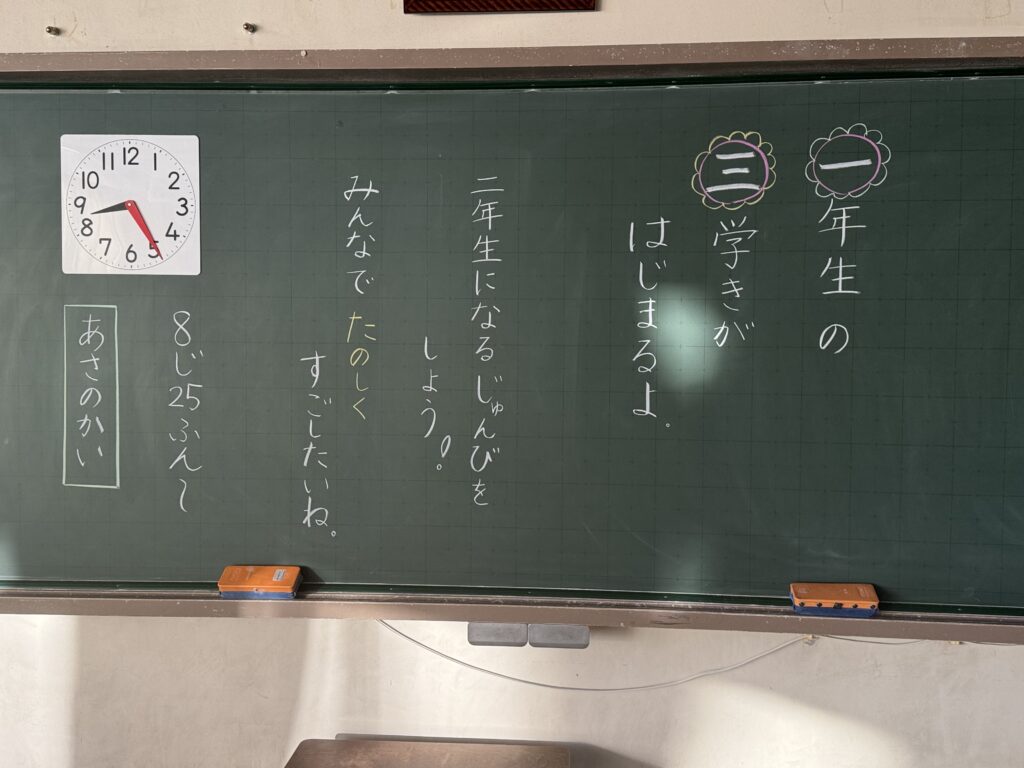 一年生の
三学きが
はじまるよ。
二年生になるじゅんびを
しょう!。
みんなでたのしく
すごしたいね。
8じ25ふん~
あさのかい
12
1
2
3
4
5
6
7
8
9
10
11